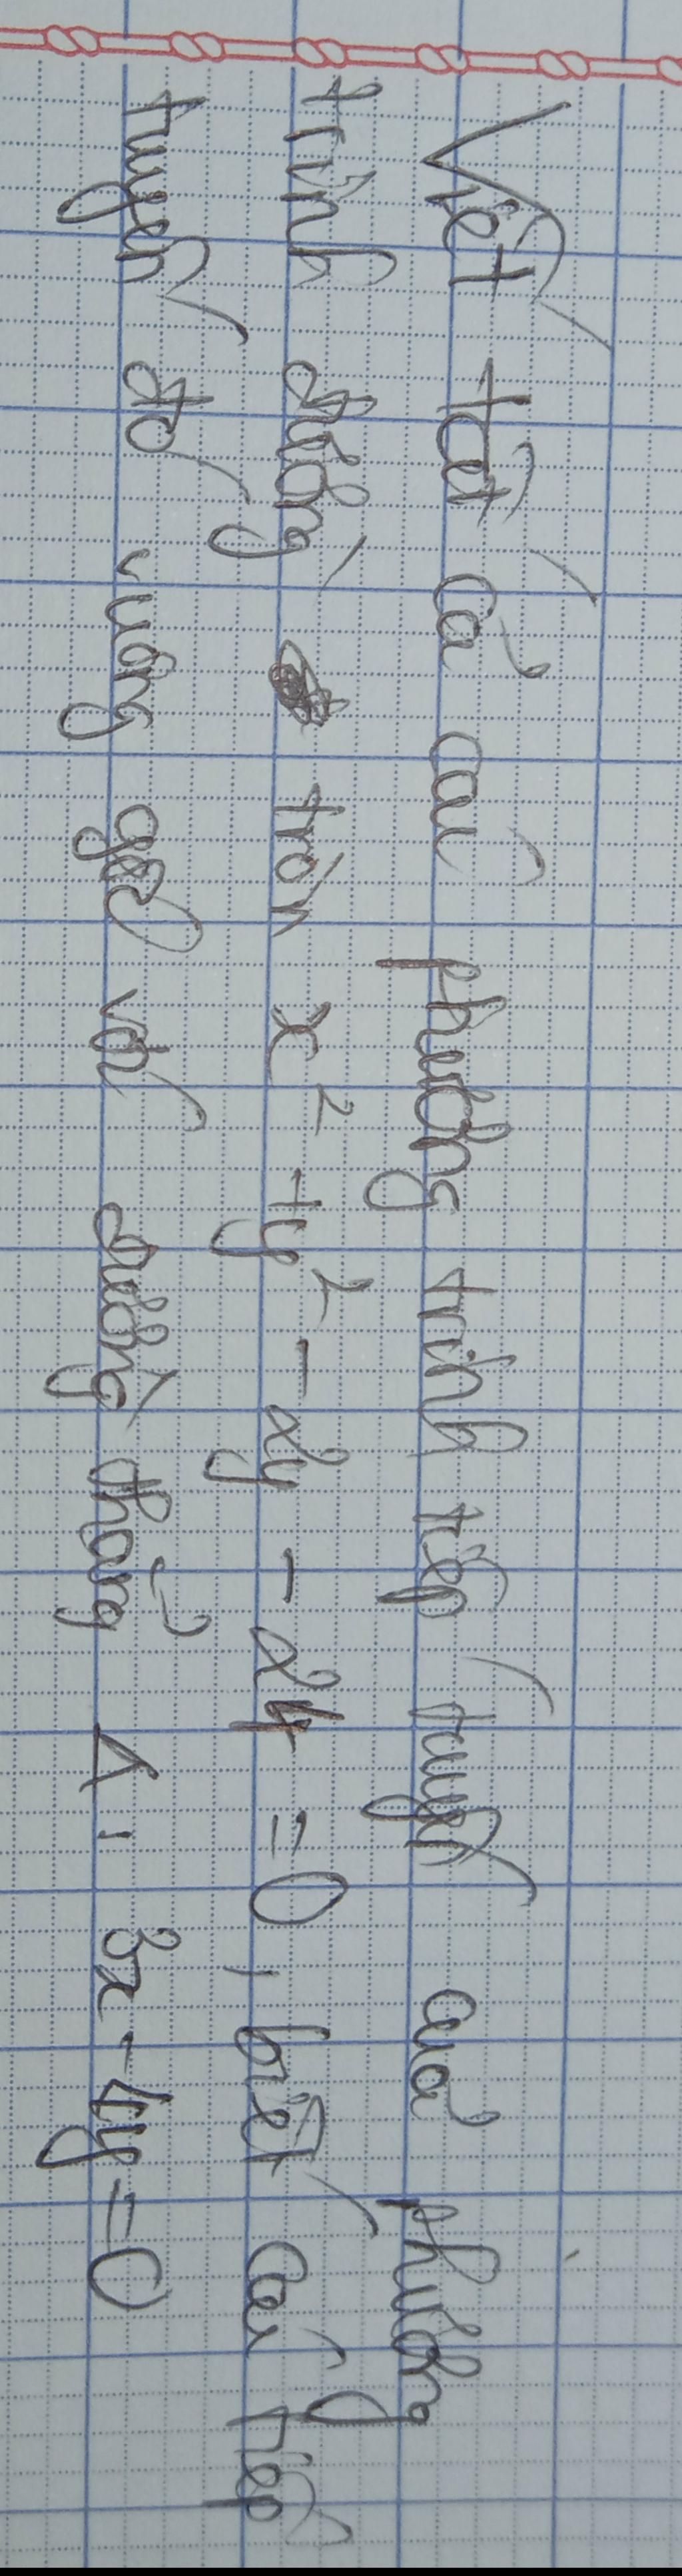 Viết tất cả các phương trình tiếp tuyến của phương
trình đường tròn x² + y² - 2y - 24 = 0, biết các tiếp
tuyến đó vuông góc với đường thẳng Δ: 3x - 4y = 0